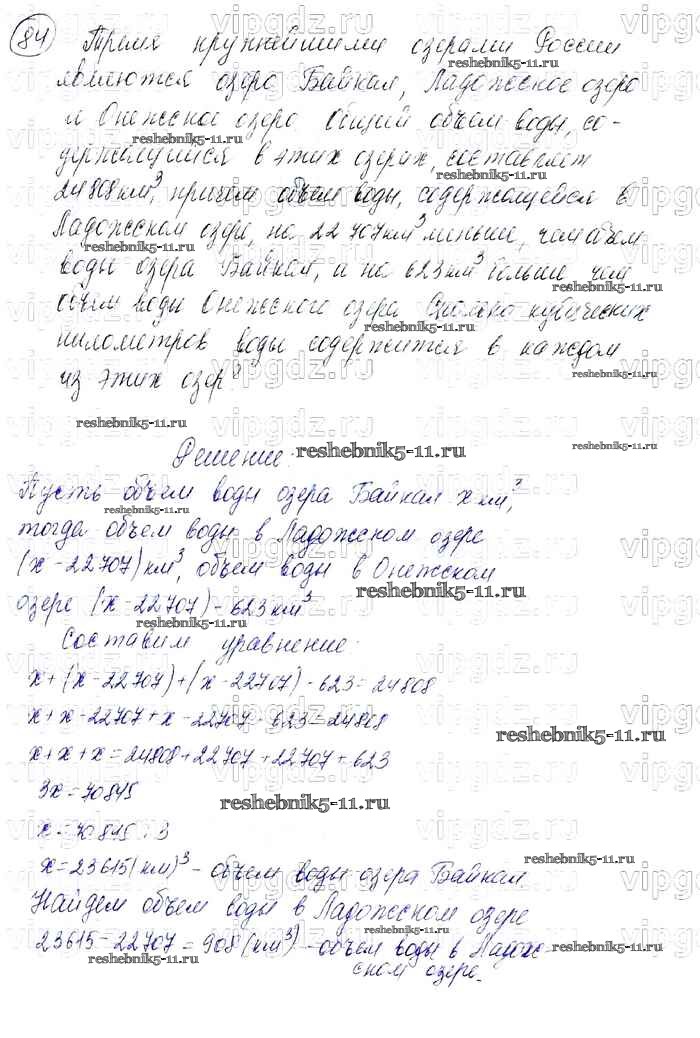 84 Тремя крупнейшими озерами России
являются озеро Байкал, Ладожское озеро
и Онежское озеро. Общий объем воды, со-
держащийся в этих озерах, составляет
24808 км³, причем объем воды, содержащейся в
Ладожском озере, на 22 707 км³ меньше, чем объем
воды озера Байкал, и на 623 км³ больше чем
объем воды Онежского озера. Сколько кубических
километров воды содержится в каждом
из этих озер?
Решение:
Пусть объем воды озера Байкал x км³,
тогда объем воды в Ладожском озере
(x-22707) км³, объем воды в Онежском
озере (x-22707)-623 км³
Составим уравнение:
x+(x-22707)+(x-22707)-623=24808
x+x-22707+x-22707-623=24808
x+x+x=24808+22707+22707+623
3x=70845
x=70845:3
x=23615(км)³ - объем воды озера Байкал
Найдем объем воды в Ладожском озере
23615-22707=908(км³) - объем воды в Ладож-
ском озере.
vipgdz.ru
reshebnik5-11.ru